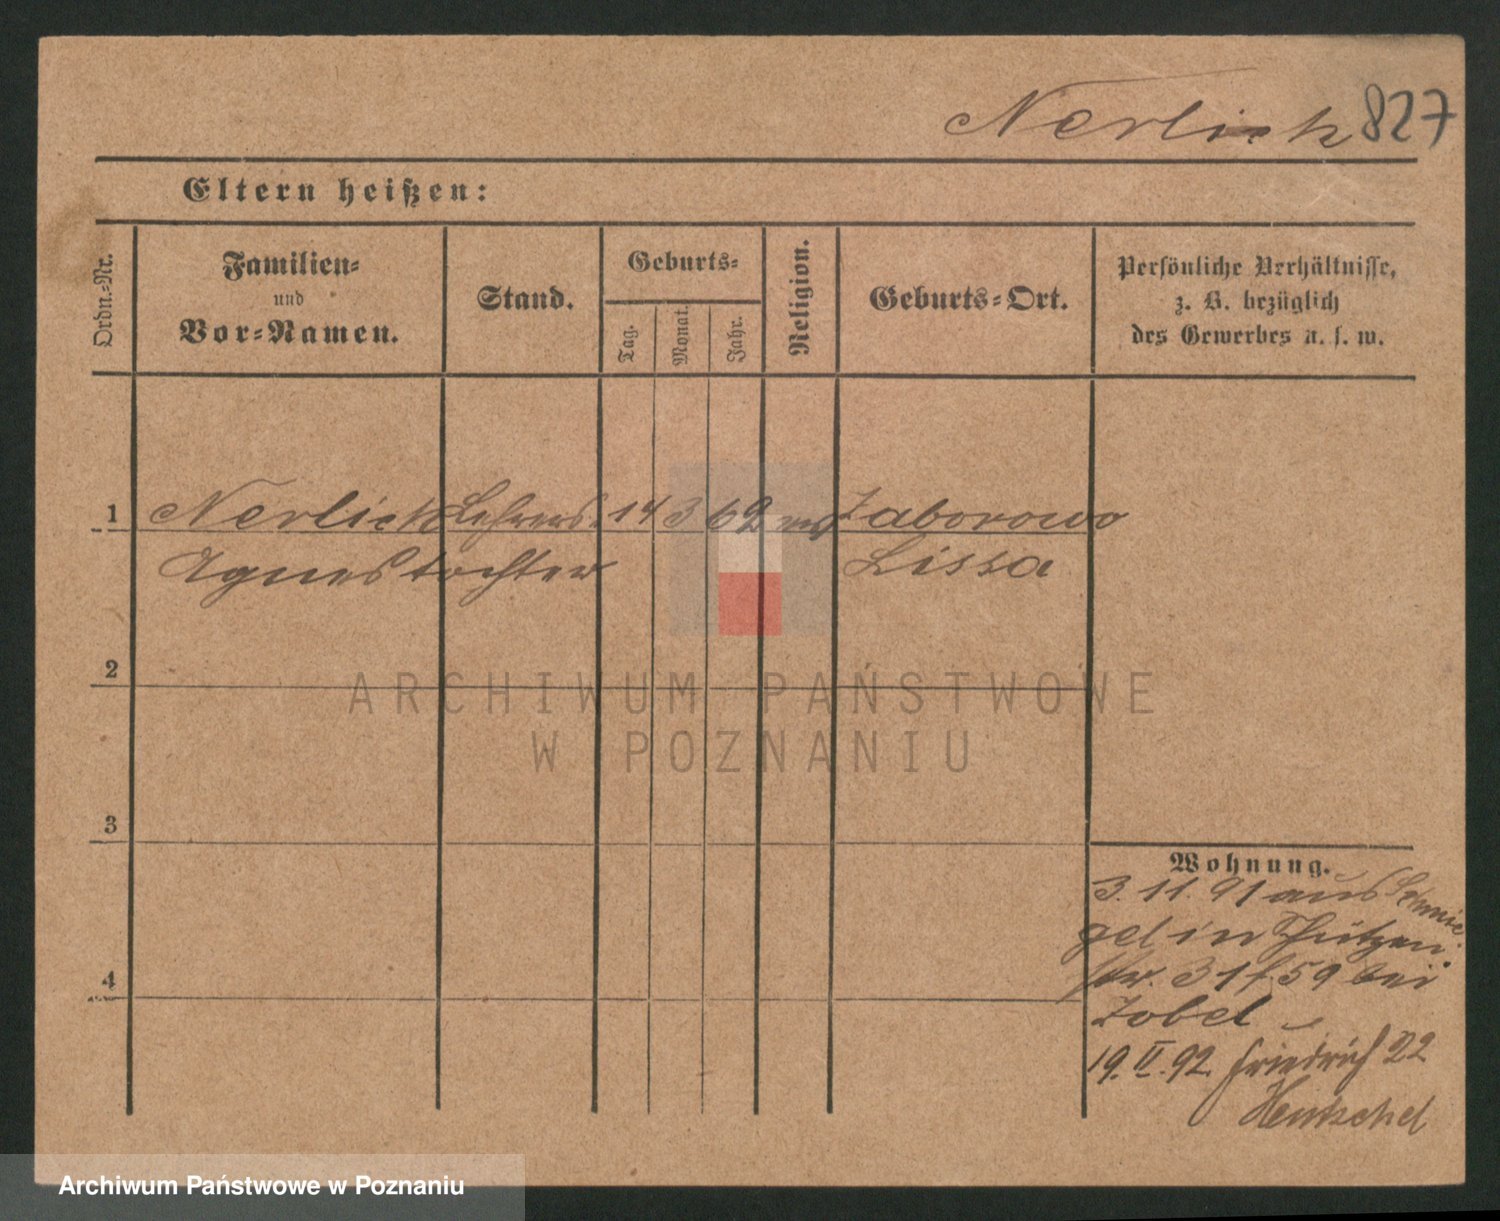 Nerlich 827
Eltern heißen:
Ordn.-Nr.
Familien-
und
Vor-Namen.
Stand.
Geburts-
Tag.
Monat.
Jahr.
Religion.
Geburts-Ort.
Persönliche Verhältnisse,
z. B. bezüglich
des Gewerbes u. s. w.
1 Nerlich Lehrers- 14 3 69 Zaborowo
Agnes tochter Lissa
2
3
4
Wohnung.
3. 11. 91 aus Schmie
gel in Schützen
str. 31 f. 59 bei
Zobel
19. II. 92. Friedrich 22
Hentschel
ARCHIWUM PAŃSTWOWE
W POZNANIU
Archiwum Państwowe w Poznaniu